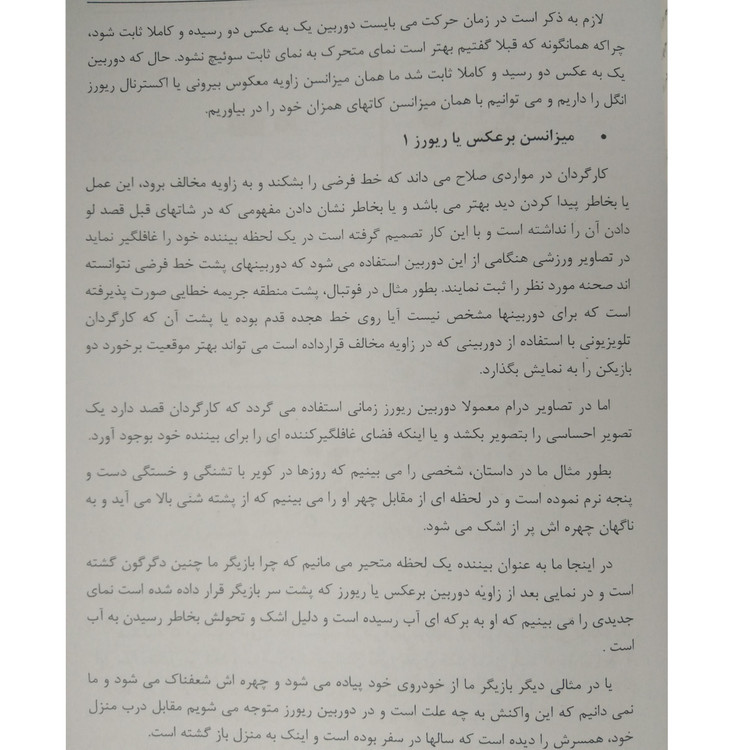 لازم به ذکر است در زمان حرکت می بایست دوربین یک به عکس دو رسیده و کاملا ثابت شود،
چراکه همانگونه که قبلا گفتیم بهتر است نمای متحرک به نمای ثابت سوئیچ نشود. حال که دوربین
یک به عکس دو رسید و کاملا ثابت شد ما همان میزانسن زاویه معکوس بیرونی یا اکسترنال ریورز
انگل را داریم و می توانیم با همان میزانسن کاتهای همزان خود را در بیاوریم.
• میزانسن برعکس یا ریورز ۱
کارگردان در مواردی صلاح می داند که خط فرضی را بشکند و به زاویه مخالف برود، این عمل
یا بخاطر پیدا کردن دید بهتر می باشد و یا بخاطر نشان دادن مفهومی که در شاتهای قبل قصد لو
دادن آن را نداشته است و با این کار تصمیم گرفته است در یک لحظه بیننده خود را غافلگیر نماید
در تصاویر ورزشی هنگامی از این دوربین استفاده می شود که دوربینهای پشت خط فرضی نتوانسته
اند صحنه مورد نظر را ثبت نمایند. بطور مثال در فوتبال، پشت منطقه جریمه خطایی صورت پذیرفته
است که برای دوربینها مشخص نیست آیا روی خط هجده قدم بوده یا پشت آن که کارگردان
تلویزیونی با استفاده از دوربینی که در زاویه مخالف قرارداده است می تواند بهتر موقعیت برخورد دو
بازیکن را به نمایش بگذارد.
اما در تصاویر درام معمولا دوربین ریورز زمانی استفاده می گردد که کارگردان قصد دارد یک
تصویر احساسی را بتصویر بکشد و یا اینکه فضای غافلگیرکننده ای را برای بیننده خود بوجود آورد.
بطور مثال ما در داستان، شخصی را می بینیم که روزها در کویر با تشنگی و خستگی دست و
پنجه نرم نموده است و در لحظه ای از مقابل چهر او را می بینیم که از پشته شنی بالا می آید و به
ناگهان چهره اش پر از اشک می شود.
در اینجا ما به عنوان بیننده یک لحظه متحیر می مانیم که چرا بازیگر ما چنین دگرگون گشته
است و در نمایی بعد از زاویه دوربین برعکس یا ریورز که پشت سر بازیگر قرار داده شده است نمای
جدیدی را می بینیم که او به برکه ای آب رسیده است و دلیل اشک و تحولش بخاطر رسیدن به آب
است .
یا در مثالی دیگر بازیگر ما از خودروی خود پیاده می شود و چهره اش شعفناک می شود و ما
نمی دانیم که این واکنش به چه علت است و در دوربین ریورز متوجه می شویم مقابل درب منزل
خود، همسرش را دیده است که سالها در سفر بوده است و اینک به منزل باز گشته است.